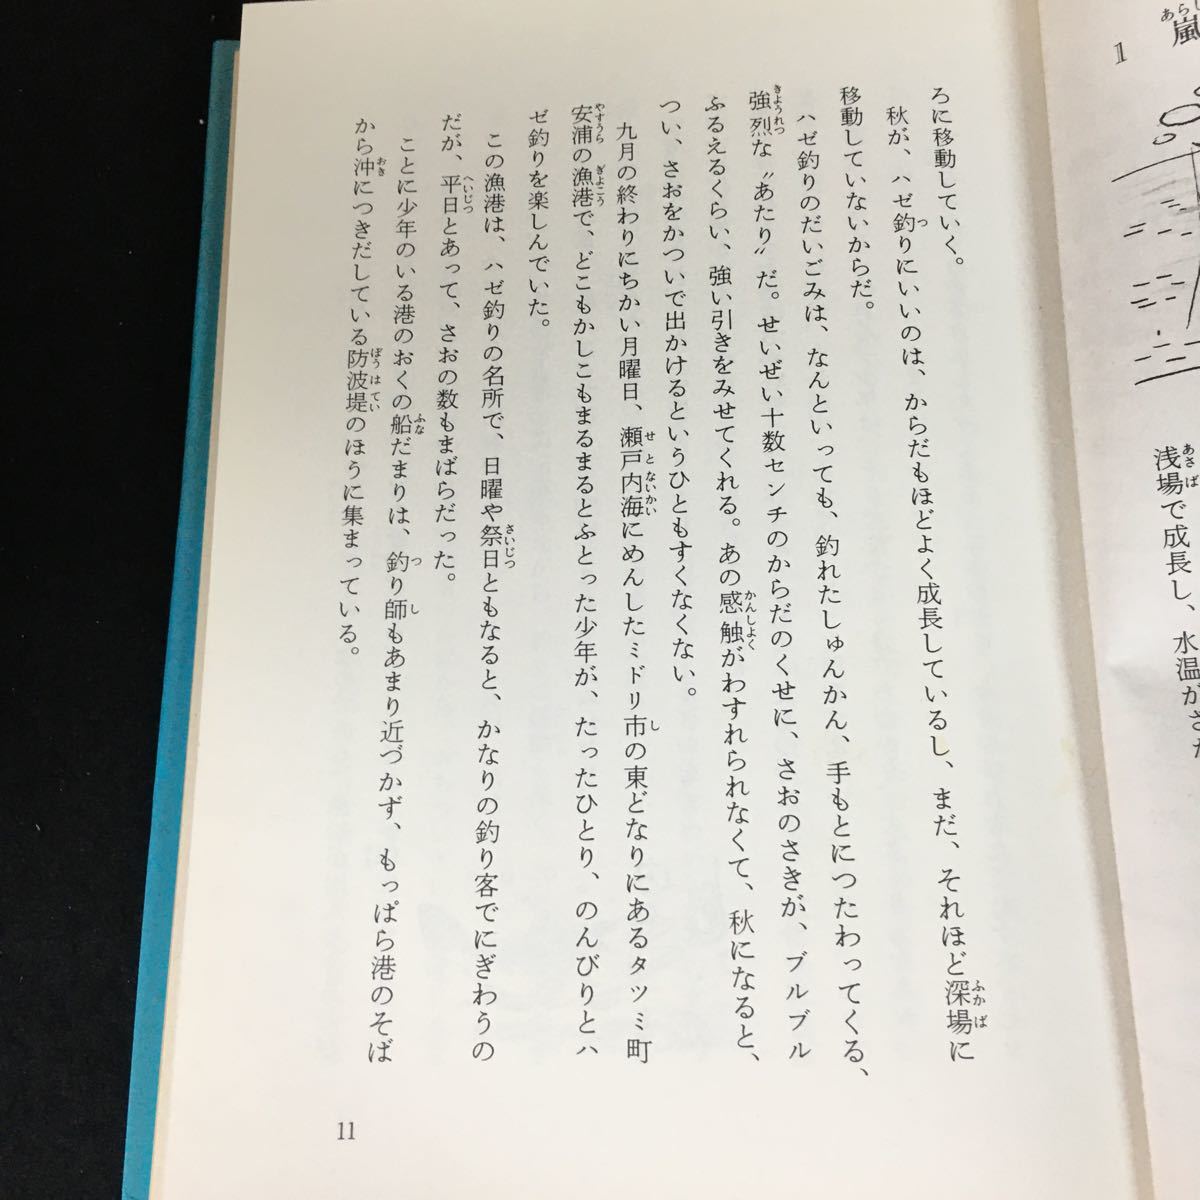 嵐
あらし
1
浅場で成長し、水温がさ
あさば
ろに移動していく。
秋が、ハゼ釣りにいいのは、からだもほどよく成長しているし、まだ、それほど深場に
つ
ふかば
移動していないからだ。
ハゼ釣りのだいごみは、なんといっても、釣れたしゅんかん、手もとにつたわってくる、
強烈な〝あたり〟だ。せいぜい十数センチのからだのくせに、さおのさきが、ブルブル
きようれつ
ふるえるくらい、強い引きをみせてくれる。あの感触がわすれられなくて、秋になると、
かんしよく
つい、さおをかついで出かけるというひともすくなくない。
九月の終わりにちかい月曜日、瀬戸内海にめんしたミドリ市の東どなりにあるタツミ町
せとないかい
し
安浦の漁港で、どこもかしこもまるまるとふとった少年が、たったひとり、のんびりとハ
やすうら
ぎよこう
ゼ釣りを楽しんでいた。
この漁港は、ハゼ釣りの名所で、日曜や祭日ともなると、かなりの釣り客でにぎわうの
さいじつ
だが、平日とあって、さおの数もまばらだった。
へいじつ
ことに少年のいる港のおくの船だまりは、釣り師もあまり近づかず、もっぱら港のそば
ふな
つ
し
から沖につきだしている防波堤のほうに集まっている。
おき
ぼうはてい
11